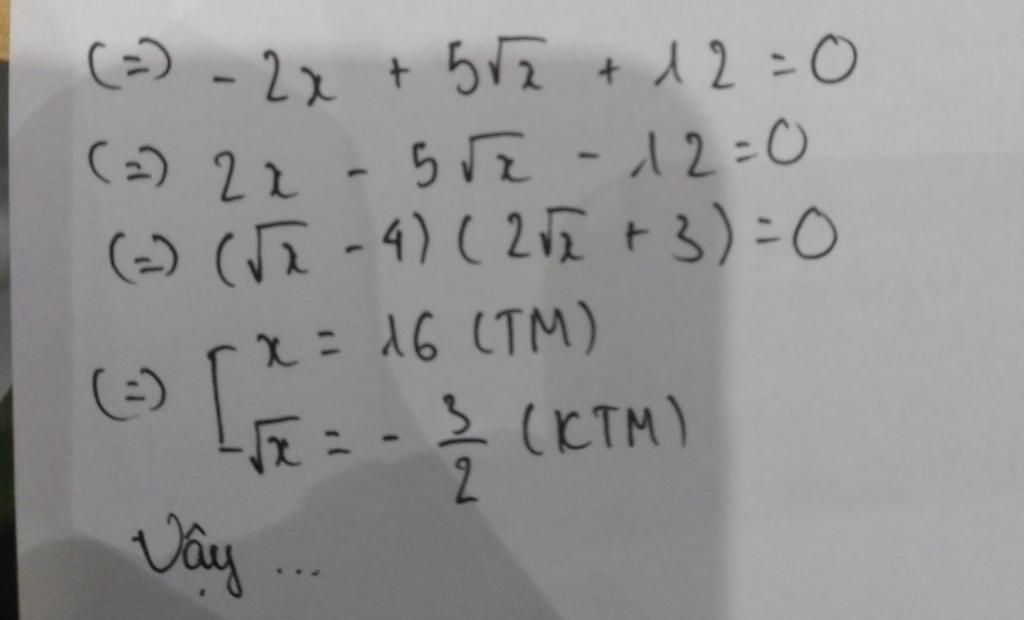 (=) - 2x + 5√x + 12 = 0
(=) 2x - 5√x - 12 = 0
(=) (√x - 4) ( 2√x + 3) = 0
(=) [ x = 16 (TM)
√x = - 3/2 (KTM)
Vậy ...